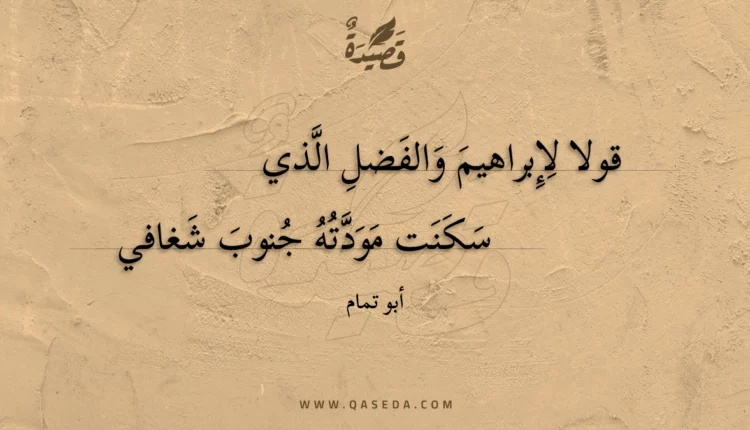 قَصِيدَةٌ
قولا لِإِبراهيمَ وَالفَضلِ الَّذي
سَكَنَت مَوَدَّتُهُ جُنوبَ شَغافي
أبو تمام
WWW.QASEDA.COM